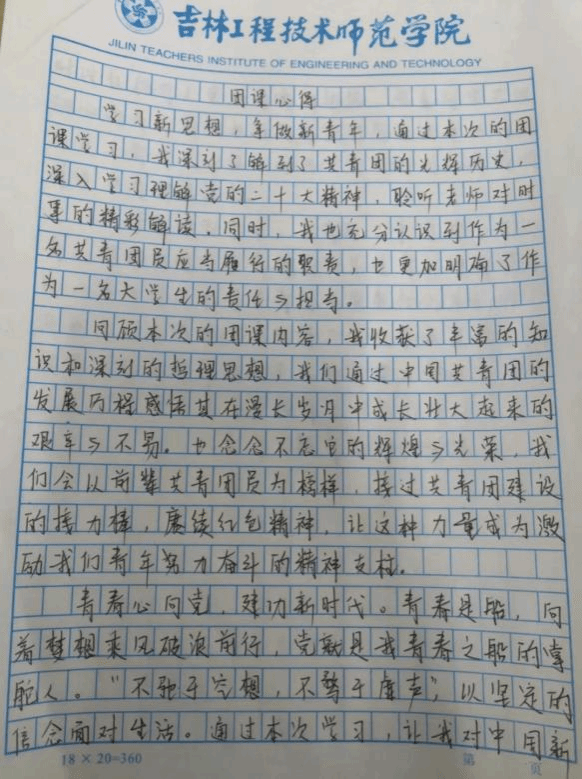 吉林工程技术师范学院
JILIN TEACHERS INSTITUTE OF ENGINEERING AND TECHNOLOGY
团课心得
学习新思想，争做新青年，通过本次的团
课学习，我深刻了解到了共青团的光辉历史，
深入学习理解党的二十大精神，聆听老师对时
事的精彩解读，同时，我也充分认识到作为一
名共青团员应当履行的职责，也更加明确了作
为一名大学生的责任与担当。
回顾本次的团课内容，我收获了丰富的知
识和深刻的哲理思想，我们通过中国共青团的
发展历程感悟其在漫长岁月中成长壮大起来的
艰辛与不易。也念念不忘它的辉煌与光荣，我
们会以前辈共青团员为榜样，接过共青团建设
的接力棒，赓续红色精神，让这种力量成为激
励我们青年努力奋斗的精神支柱。
青春心向党，建功新时代。青春是船，向
着梦想乘风破浪前行，党就是我青春之船的掌
舵人。“不驰于空想，不骛于虚声”，以坚定的
信念面对生活。通过本次学习，让我对中国新
18×20=360
第
页